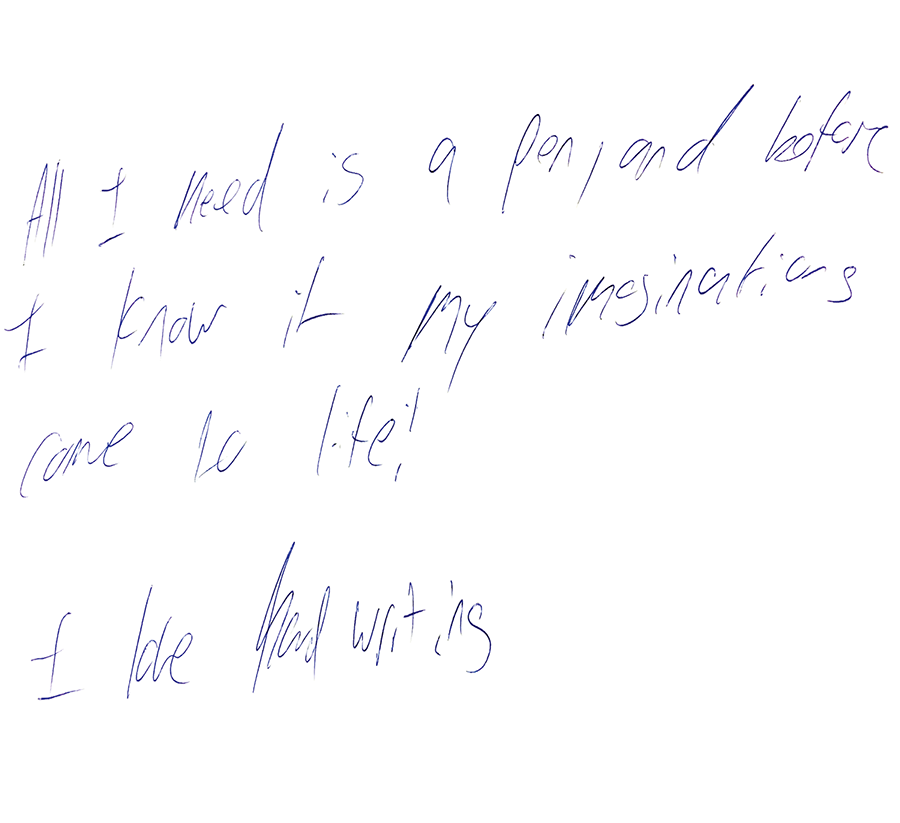 All I need is a pen, and before
I know it my imaginations
come to life!
I love hand writing